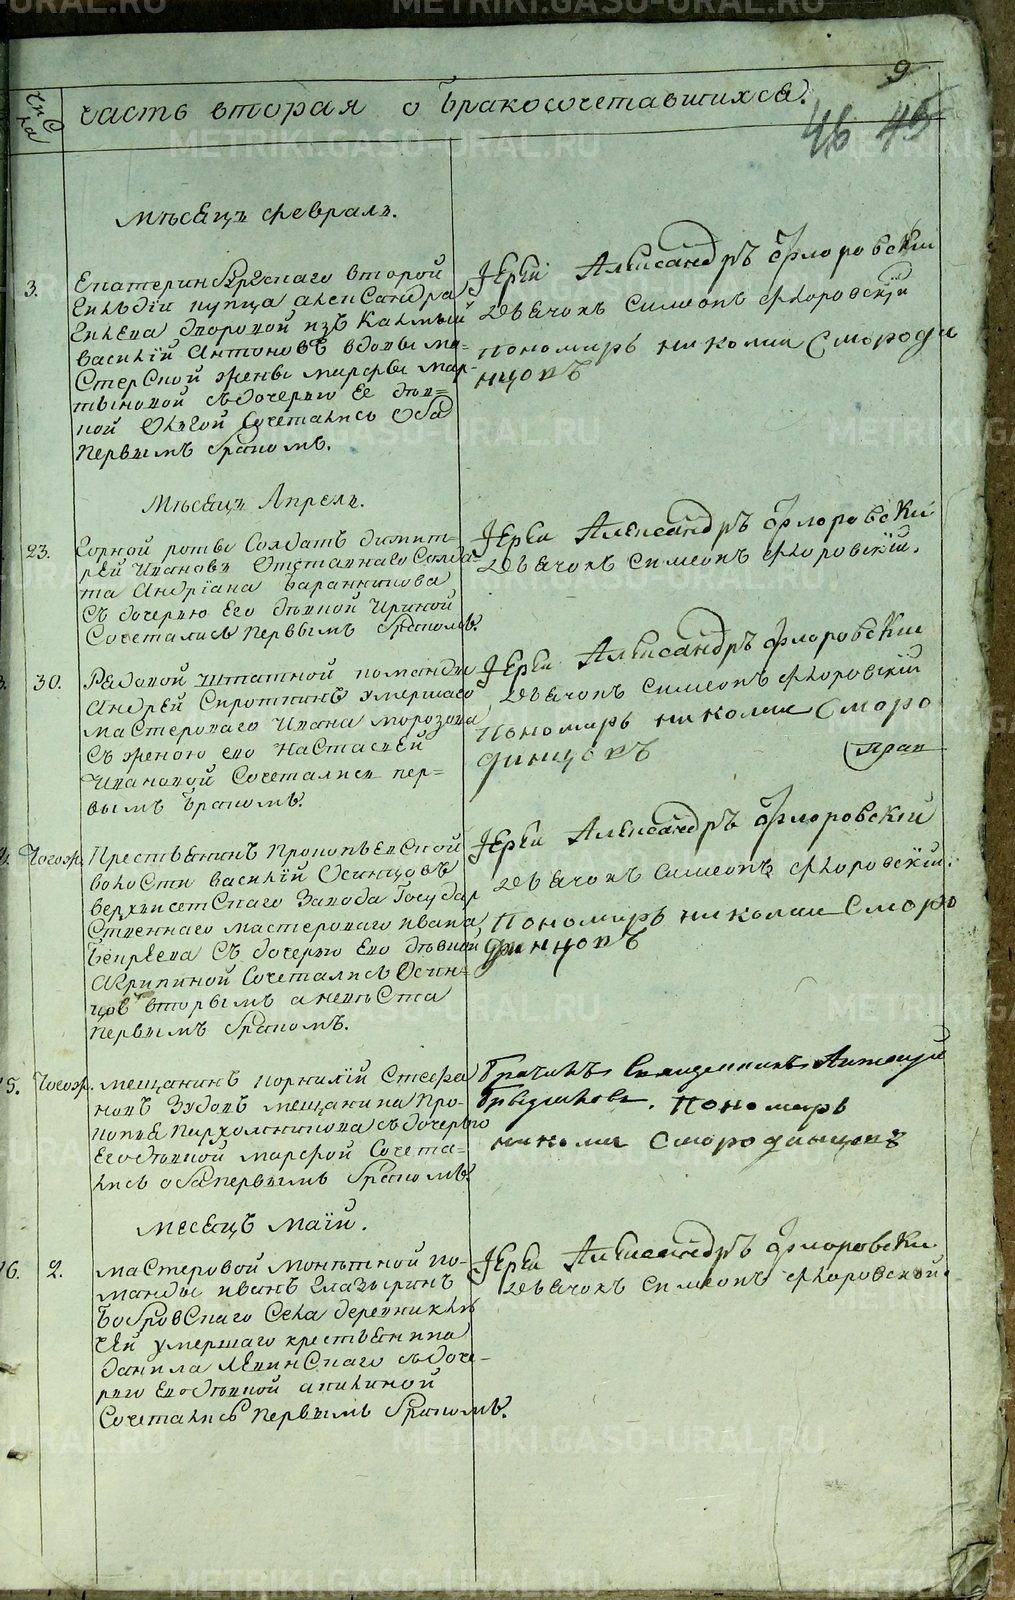 9
46 45
Чис
ла
часть вторая о бракосочетавшихся.
Мѣсяцъ февраль.
3.
Екатеринбургскаго второй
Гильдіи купца александра
дворовой изъ Калмыкъ
василій Антоновъ вдовы ма-
стерской жены марфы мар-
тыновой съ дочерью Ее дѣв-
кой Ольгой Сочетались Оба
первымъ бракомъ.
Іерей Александръ Флоровский
дьячокъ Симеонъ Флоровскій
пономарь николаи Смороди
нцовъ
Мѣсяцъ Апрель.
23.
Горной роты Солдатъ димит-
рей Ивановъ Отставнаго Солда-
та Андріана Баранникова
съ дочерью Его дѣвкой Ириной
Сочетались первымъ бракомъ.
Іерей Александръ Флоровский
дьячокъ Симеонъ Флоровскій.
30.
Рядовой Штатной команды
Андрей Сироткинъ умершаго
мастероваго Ивана морозова
съ женою его Настасьей
Ивановой Сочетались пер-
вымъ бракомъ.
Іерей Александръ Флоровский
дьячокъ Симеонъ Флоровскій
пономарь николаи Сморо
динцовъ
Тогож.
Крестьянинъ Прокопьевской
волости василій Осинцовъ
верхъисетскаго завода Государ
ственнаго мастероваго ивана
съ дочерью Его дѣвкой
Акрипиной Сочетались Осин-
цовъ вторымъ а невѣста
первымъ бракомъ.
Іерей Александръ Флоровский
дьячокъ Симеонъ Флоровскій.
Пономарь николаи Сморо
динцовъ
5. Тогож.
мещанинъ корнилій Стефа
новъ Зудовъ мещанина Про-
копья Пархоменкова съ дочерью
Его дѣвкой марфой Сочета-
лись оба первымъ бракомъ.
Священникъ Антоний
Пономарь
николаи Смородинцовъ
месяцъ маій.
6.
2.
мастеровой монѣтной ко-
манды иванъ Глазыринъ
Бобровскаго Села деревни клю
чей умершаго крестьянина
данила съ доче-
рью Его дѣвкой акилиной
Сочетались первымъ бракомъ.
Іерей Александръ Флоровский
дьячокъ Симеонъ Флоровской.
METRIKI.GASO-URAL.RU